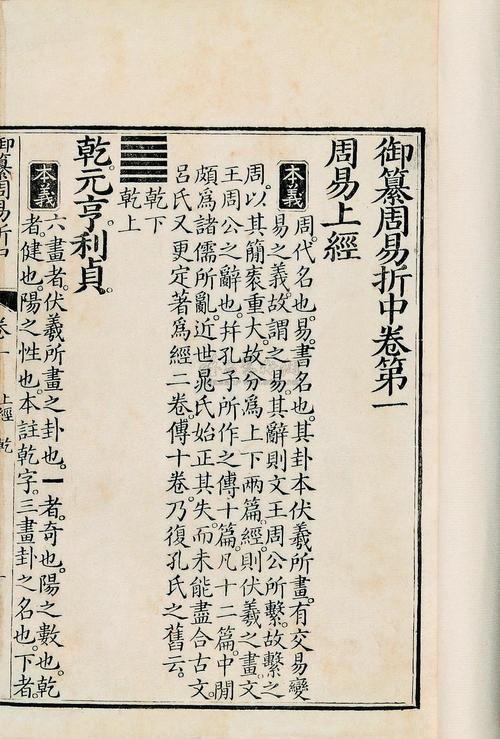 御纂周易折中卷第一
周易上經
本義
周。代名也。易。書名也。其卦本伏羲所畫。有交易變
易之義。故謂之易。其辭則文王周公所繫。故繫之
周。以其簡袠重大。故分爲上下兩篇。經則伏羲之畫。文
王周公之辭也。幷孔子所作之傳十篇。凡十二篇。中閒
頗爲諸儒所亂。近世晁氏始正其失。而未能盡合古文。
呂氏又更定著爲經二卷。傳十卷。乃復孔氏之舊云。
乾下
乾上
乾。元亨利貞。
本義
六畫者。伏羲所畫之卦也。一者。奇也。陽之數也。乾
者。健也。陽之性也。本註乾字。三畫卦之名也。下者。
御纂周易折中
卷一
上經 乾